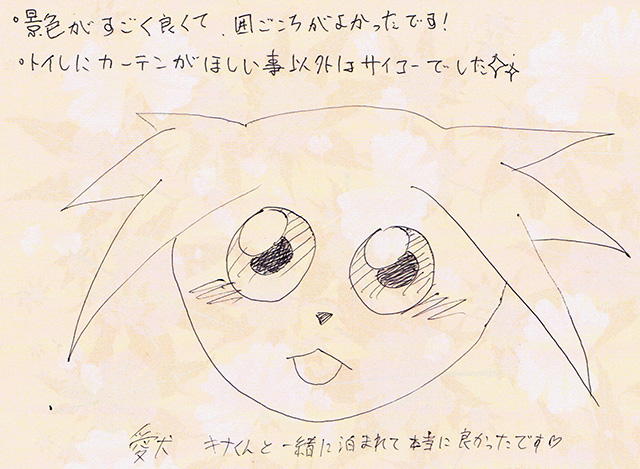 ・景色がすごく良くて、囲ごこちがよかったです!
・トイレにカーテンがほしい事以外はサイコーでした☆☆
愛犬 キナくんと一緒に泊まれて本当に良かったです♡